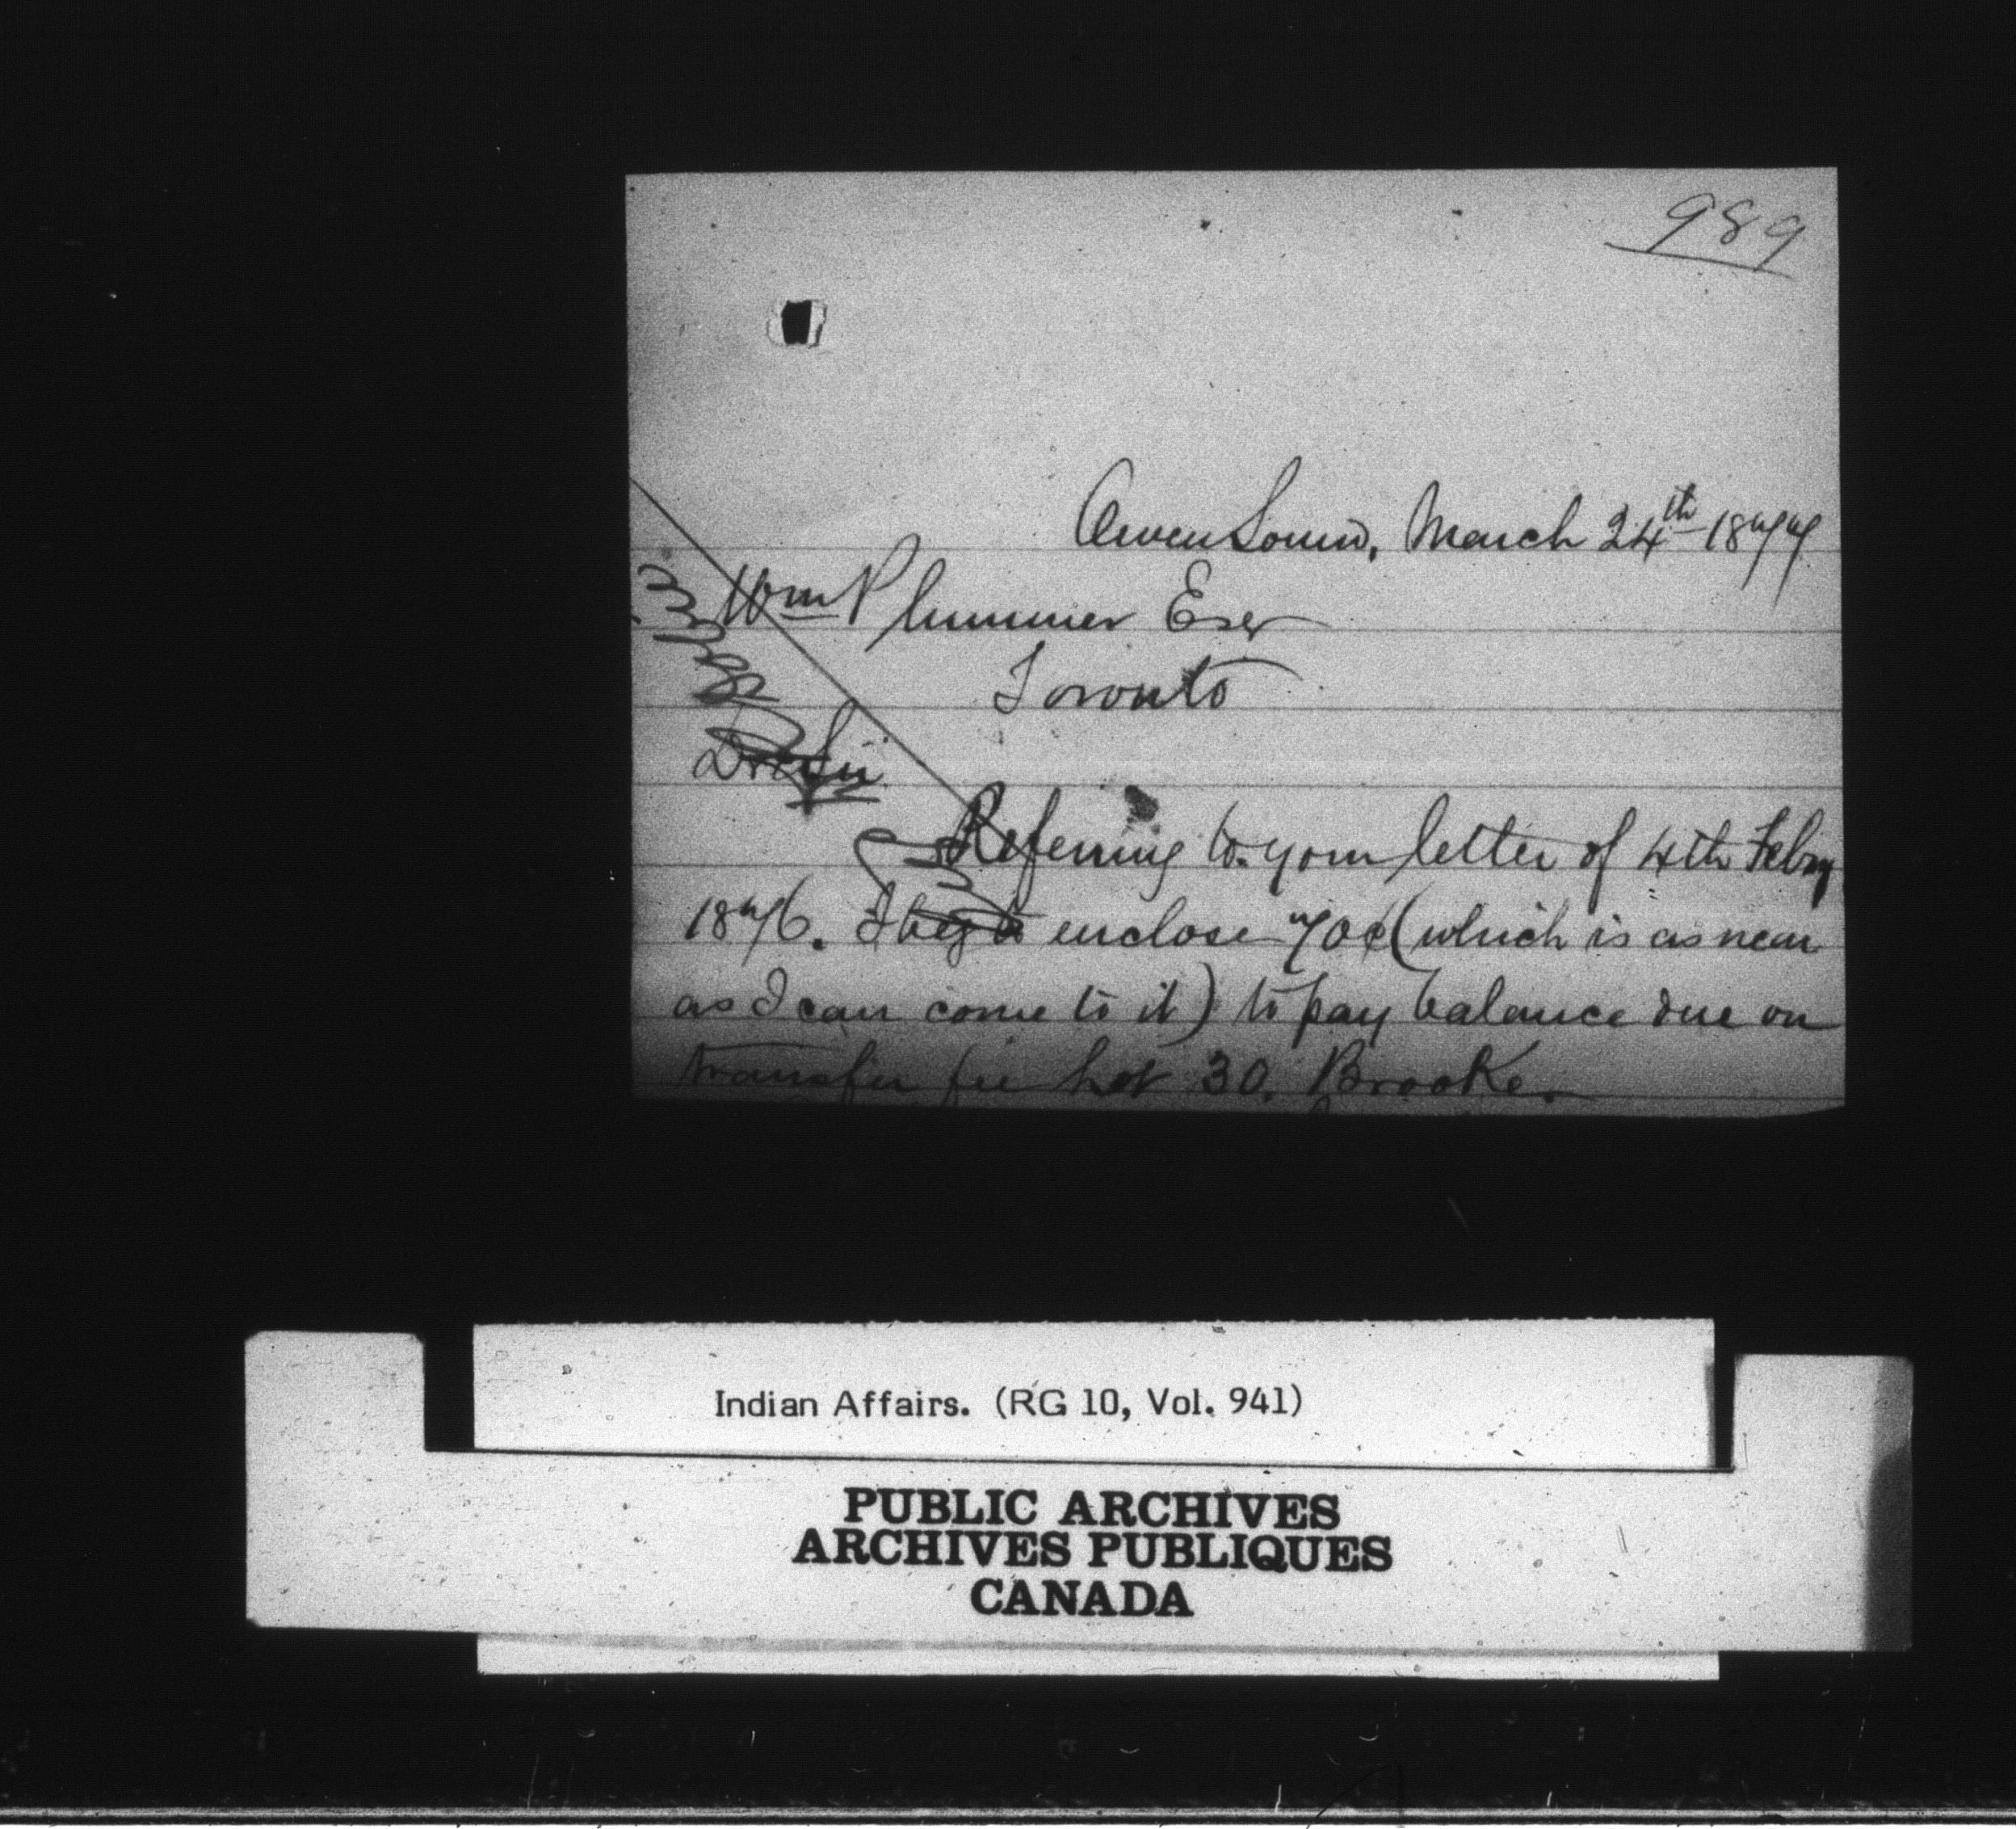 989
Owen Sound, March 24th 1877
Wm Plummer Esq
Toronto
Dr Sir
Referring to your letter of 4th Febry
1876. I beg to enclose 70¢ (which is as near
as I can come to it) to pay balance due on
transfer fee Lot 30, Brooke.
Indian Affairs. (RG 10, Vol. 941)
PUBLIC ARCHIVES
ARCHIVES PUBLIQUES
CANADA